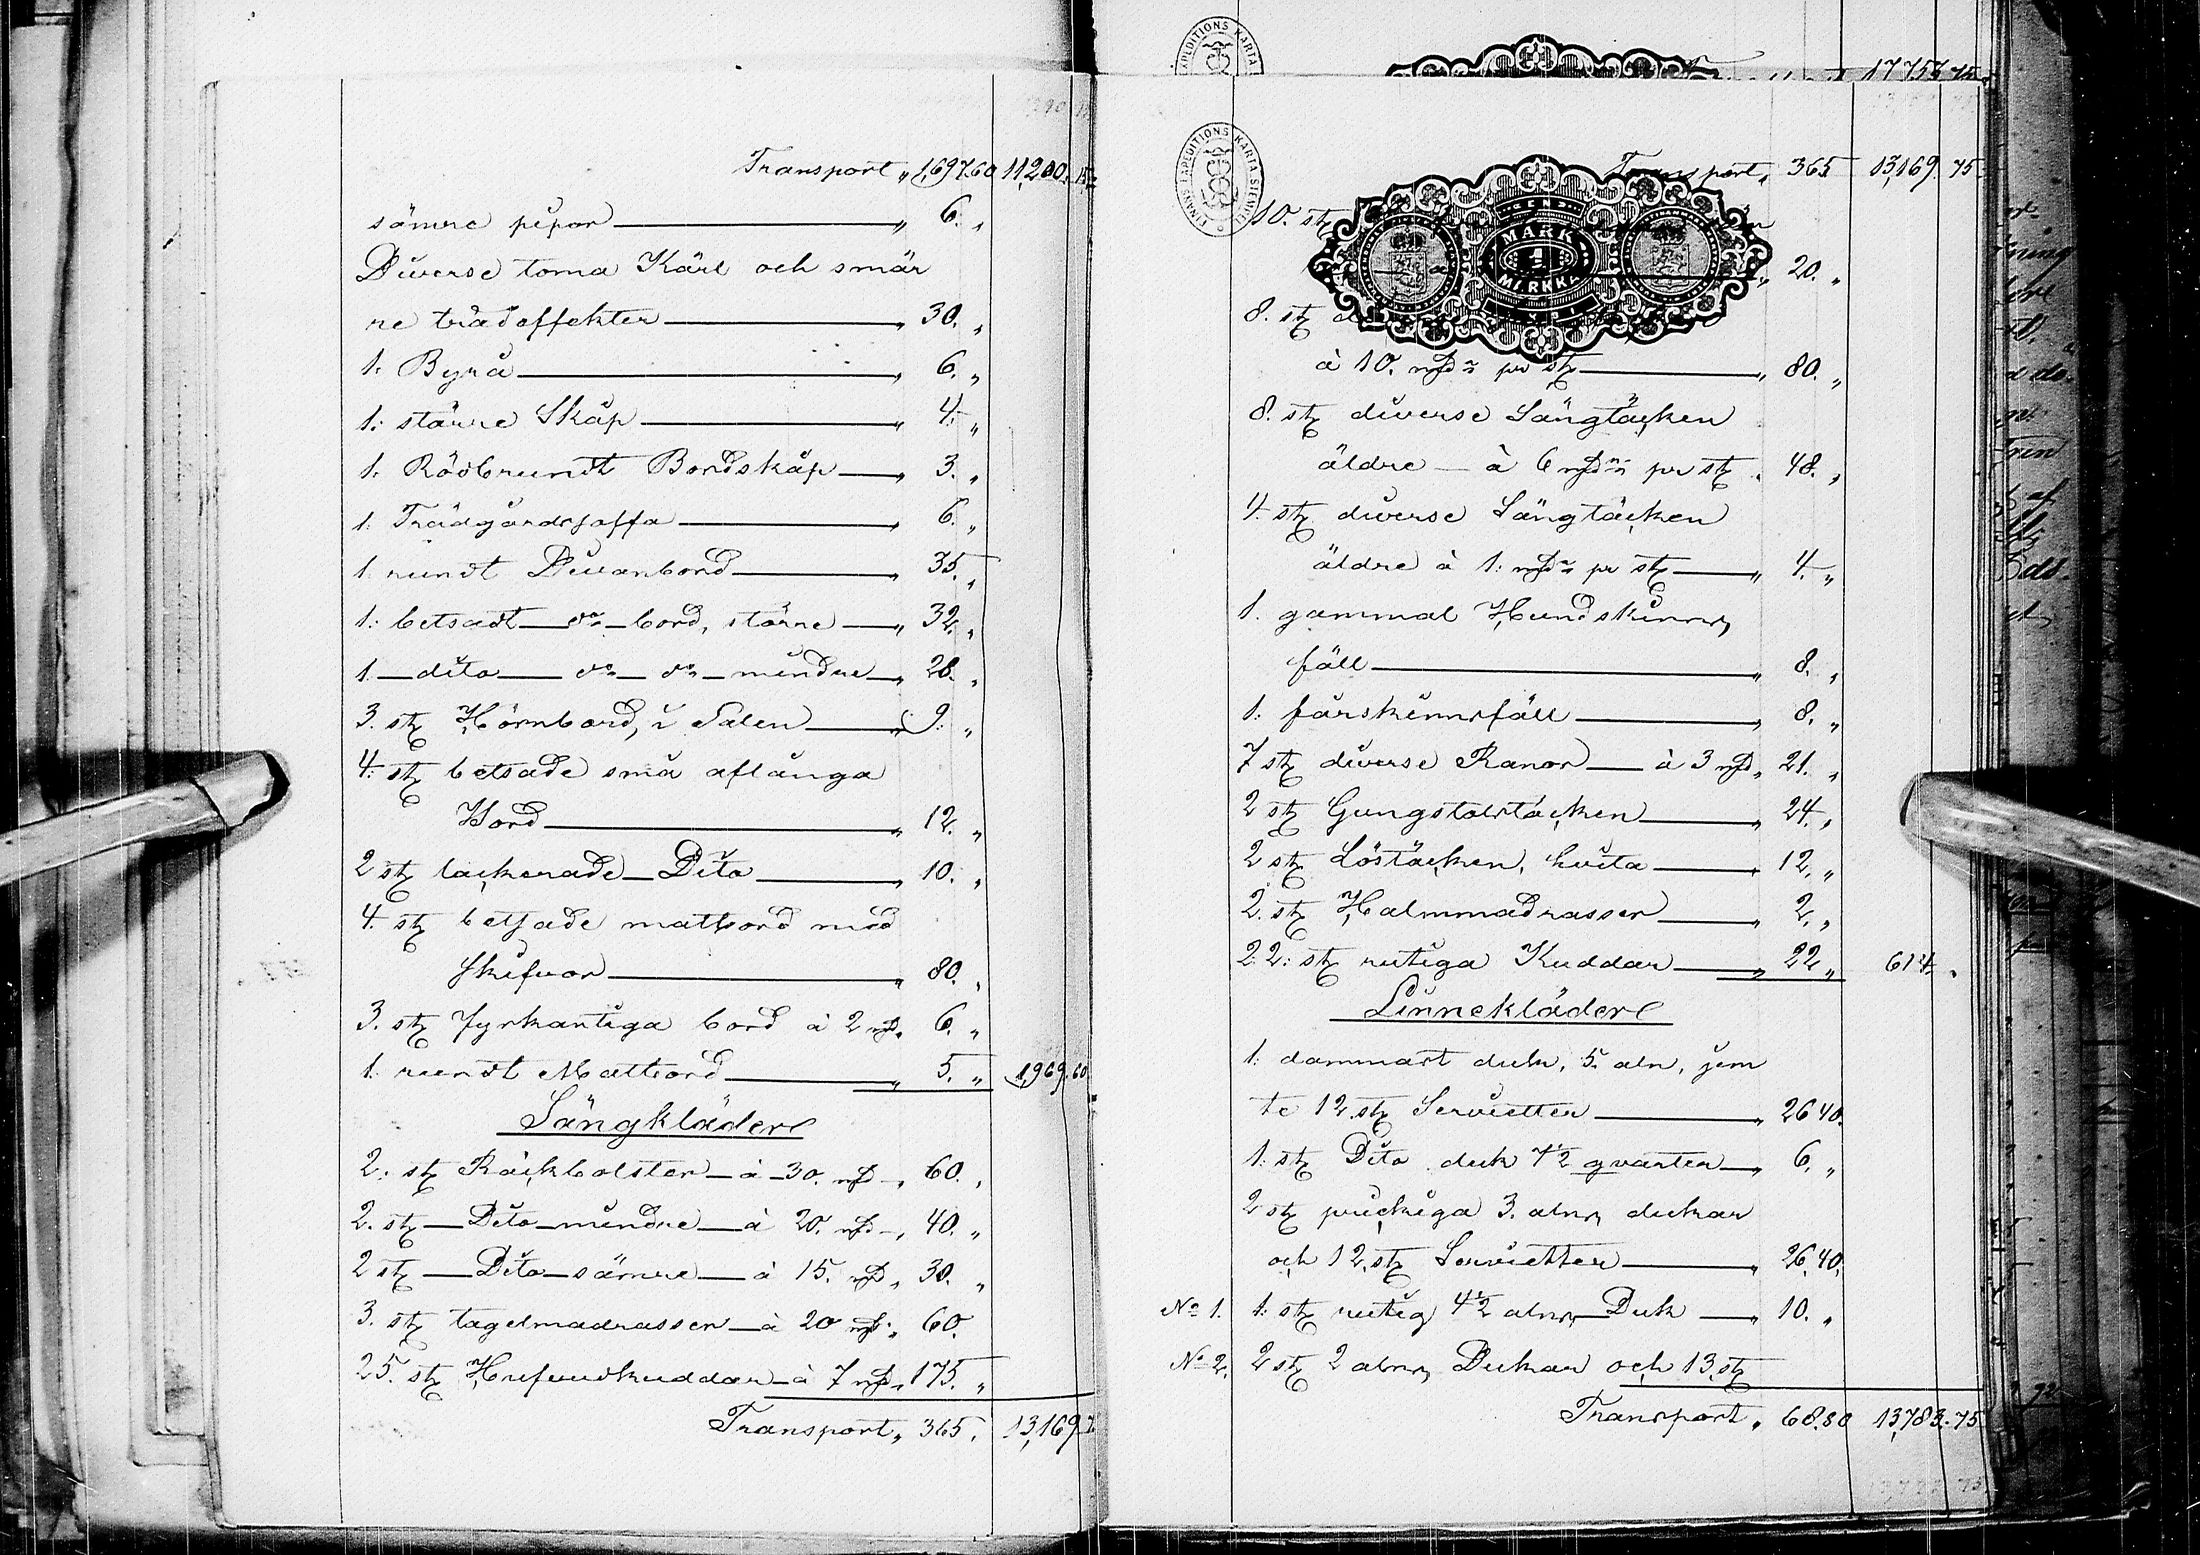 Transport „ 1,697.60 11,200. 15
sämre pipor — „ 6. „
Diverse toma Kärl och smär
re trädeffekter — „ 30. „
1. Byrå — „ 6. „
1. större Skåp — „ 4. „
1. Rödbrundt Bordskåp — „ 3. „
1. Trädgårdssoffa — „ 6. „
1. rundt Divanbord — „ 35. „
1. betsadt — do — bord, större — „ 32. „
1. — dito — do — do — mindre — „ 28. „
3. st Hörnbord, i Salen — „ 9. „
4. st betsade små aflånga
Bord — „ 12. „
2 st lackerade — Dito — „ 10. „
4. st betsade matbord med
Skifvor — „ 80. „
3. st fyrkantiga bord à 2 mk „ 6. „
1. rundt Matbord — „ 5. „ 1,969.60
Sängkläder
2. st Räckbolster — à 30. mk — „ 60. „
2. st — Dito — mindre — à 20. mk — „ 40. „
2 st — Dito — sämre — à 15. mk „ 30. „
3. st tagelmadrasser — à 20 mk „ 60.
25. st Hufvudkuddar — à 7 mk „ 175. „
Transport „ 365. 13,169.7
17753 75
FINANS EXPEDITIONS KARTA SIGILL
Transport „ 365 13,169. 75
10. st
MARK 1 MARKKA
„ 20. „
8. st
à 10. mk pr st — „ 80. „
8. st diverse Sängtäcken
äldre — à 6 mk pr st „ 48. „
4. st diverse Sängtäcken
äldre à 1. mk pr st — „ 4. „
1. gammal Hundskinns
fäll — „ 8. „
1. fårskinnsfäll — „ 8. „
7 st diverse Ranor — à 3 mk „ 21. „
2 st Gungstolstäcken — „ 24. „
2 st Löstäcken, hvita — „ 12. „
2. st Halmmadrasser — „ 2. „
22. st rutiga Kuddar — „ 22 „ 614 „
Linnekläder
1. dammast duk, 5. aln, jem
te 12. st Servietter — „ 26 40.
1. st Dito duk 7½ qvarter — „ 6. „
2 st prickiga 3. alns dukar
och 12. st Servietter — „ 26,40.
No 1. 1. st rutig 4½ alns Duk — „ 10. „
No 2. 2 st 2 alns Dukar och 13. st
Transport „ 68.80 13,783.75